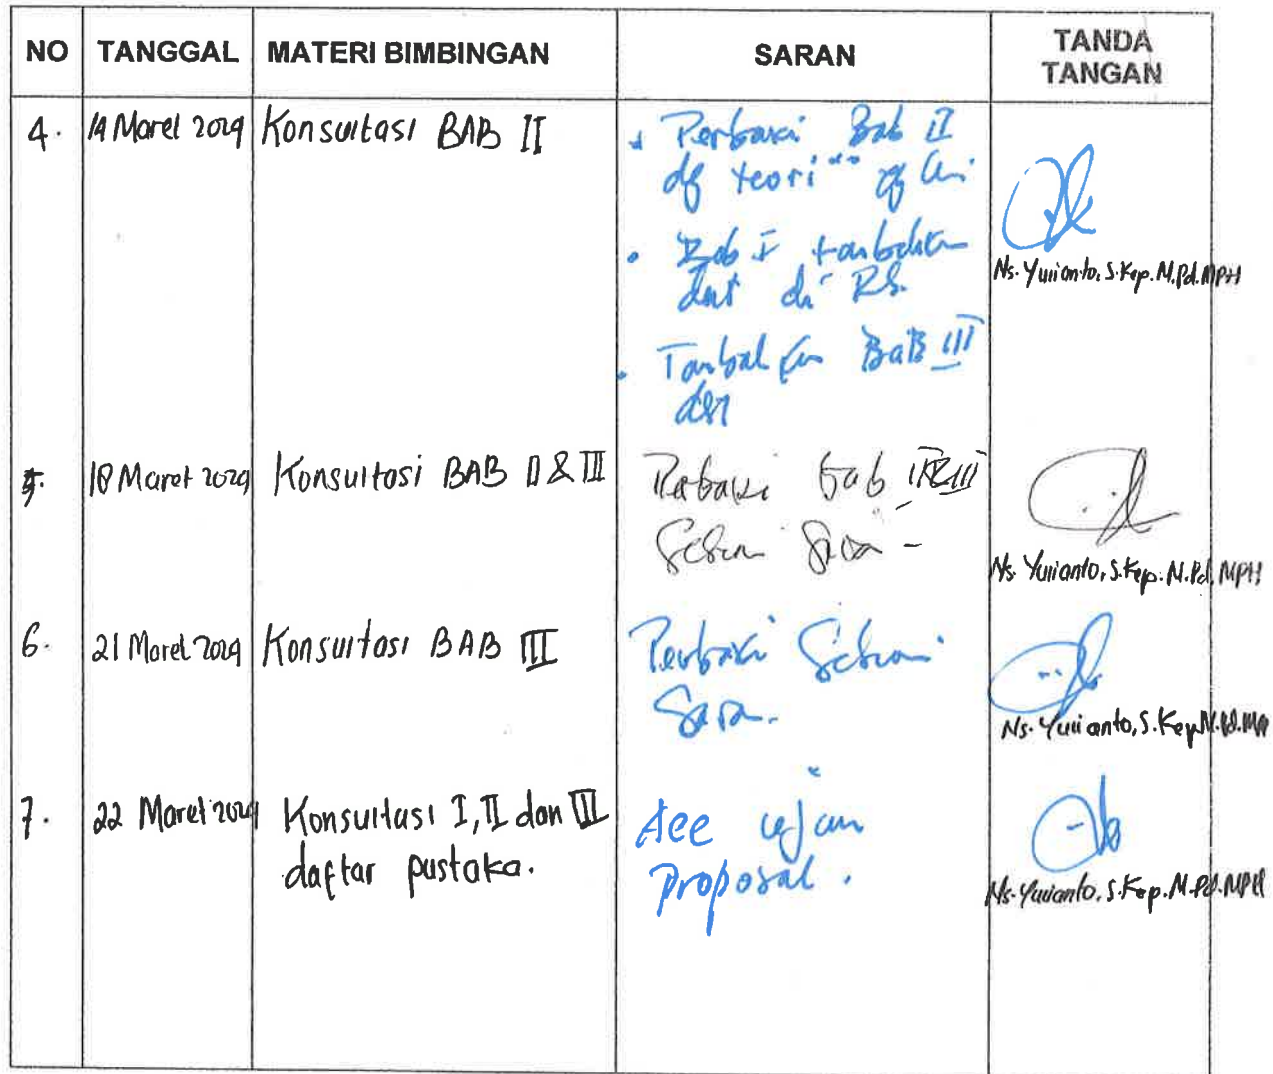 NO TANGGAL MATERI BIMBINGAN SARAN TANDA TANGAN
4. 14 Maret 2024 Konsultasi BAB II
Perbaiki Bab II
dg teori
Bab I tambahkan
di RS.
Tambahkan BAB III
Ns. Yulianto, S.Kep. M.Pd. MPH
5. 18 Maret 2024 Konsultasi BAB II & III Perbaiki bab II & III
Sesuai Saran
Ns. Yulianto, S.Kep. M.Pd. MPH
6. 21 Maret 2024 Konsultasi BAB III Perbaiki Sesuai
Saran.
Ns. Yulianto, S.Kep M.Pd. MPH
7. 22 Maret 2024 Konsultasi I, II dan III Acc ujian
daftar pustaka. Proposal.
Ns. Yulianto, S.Kep. M.Pd. MPH